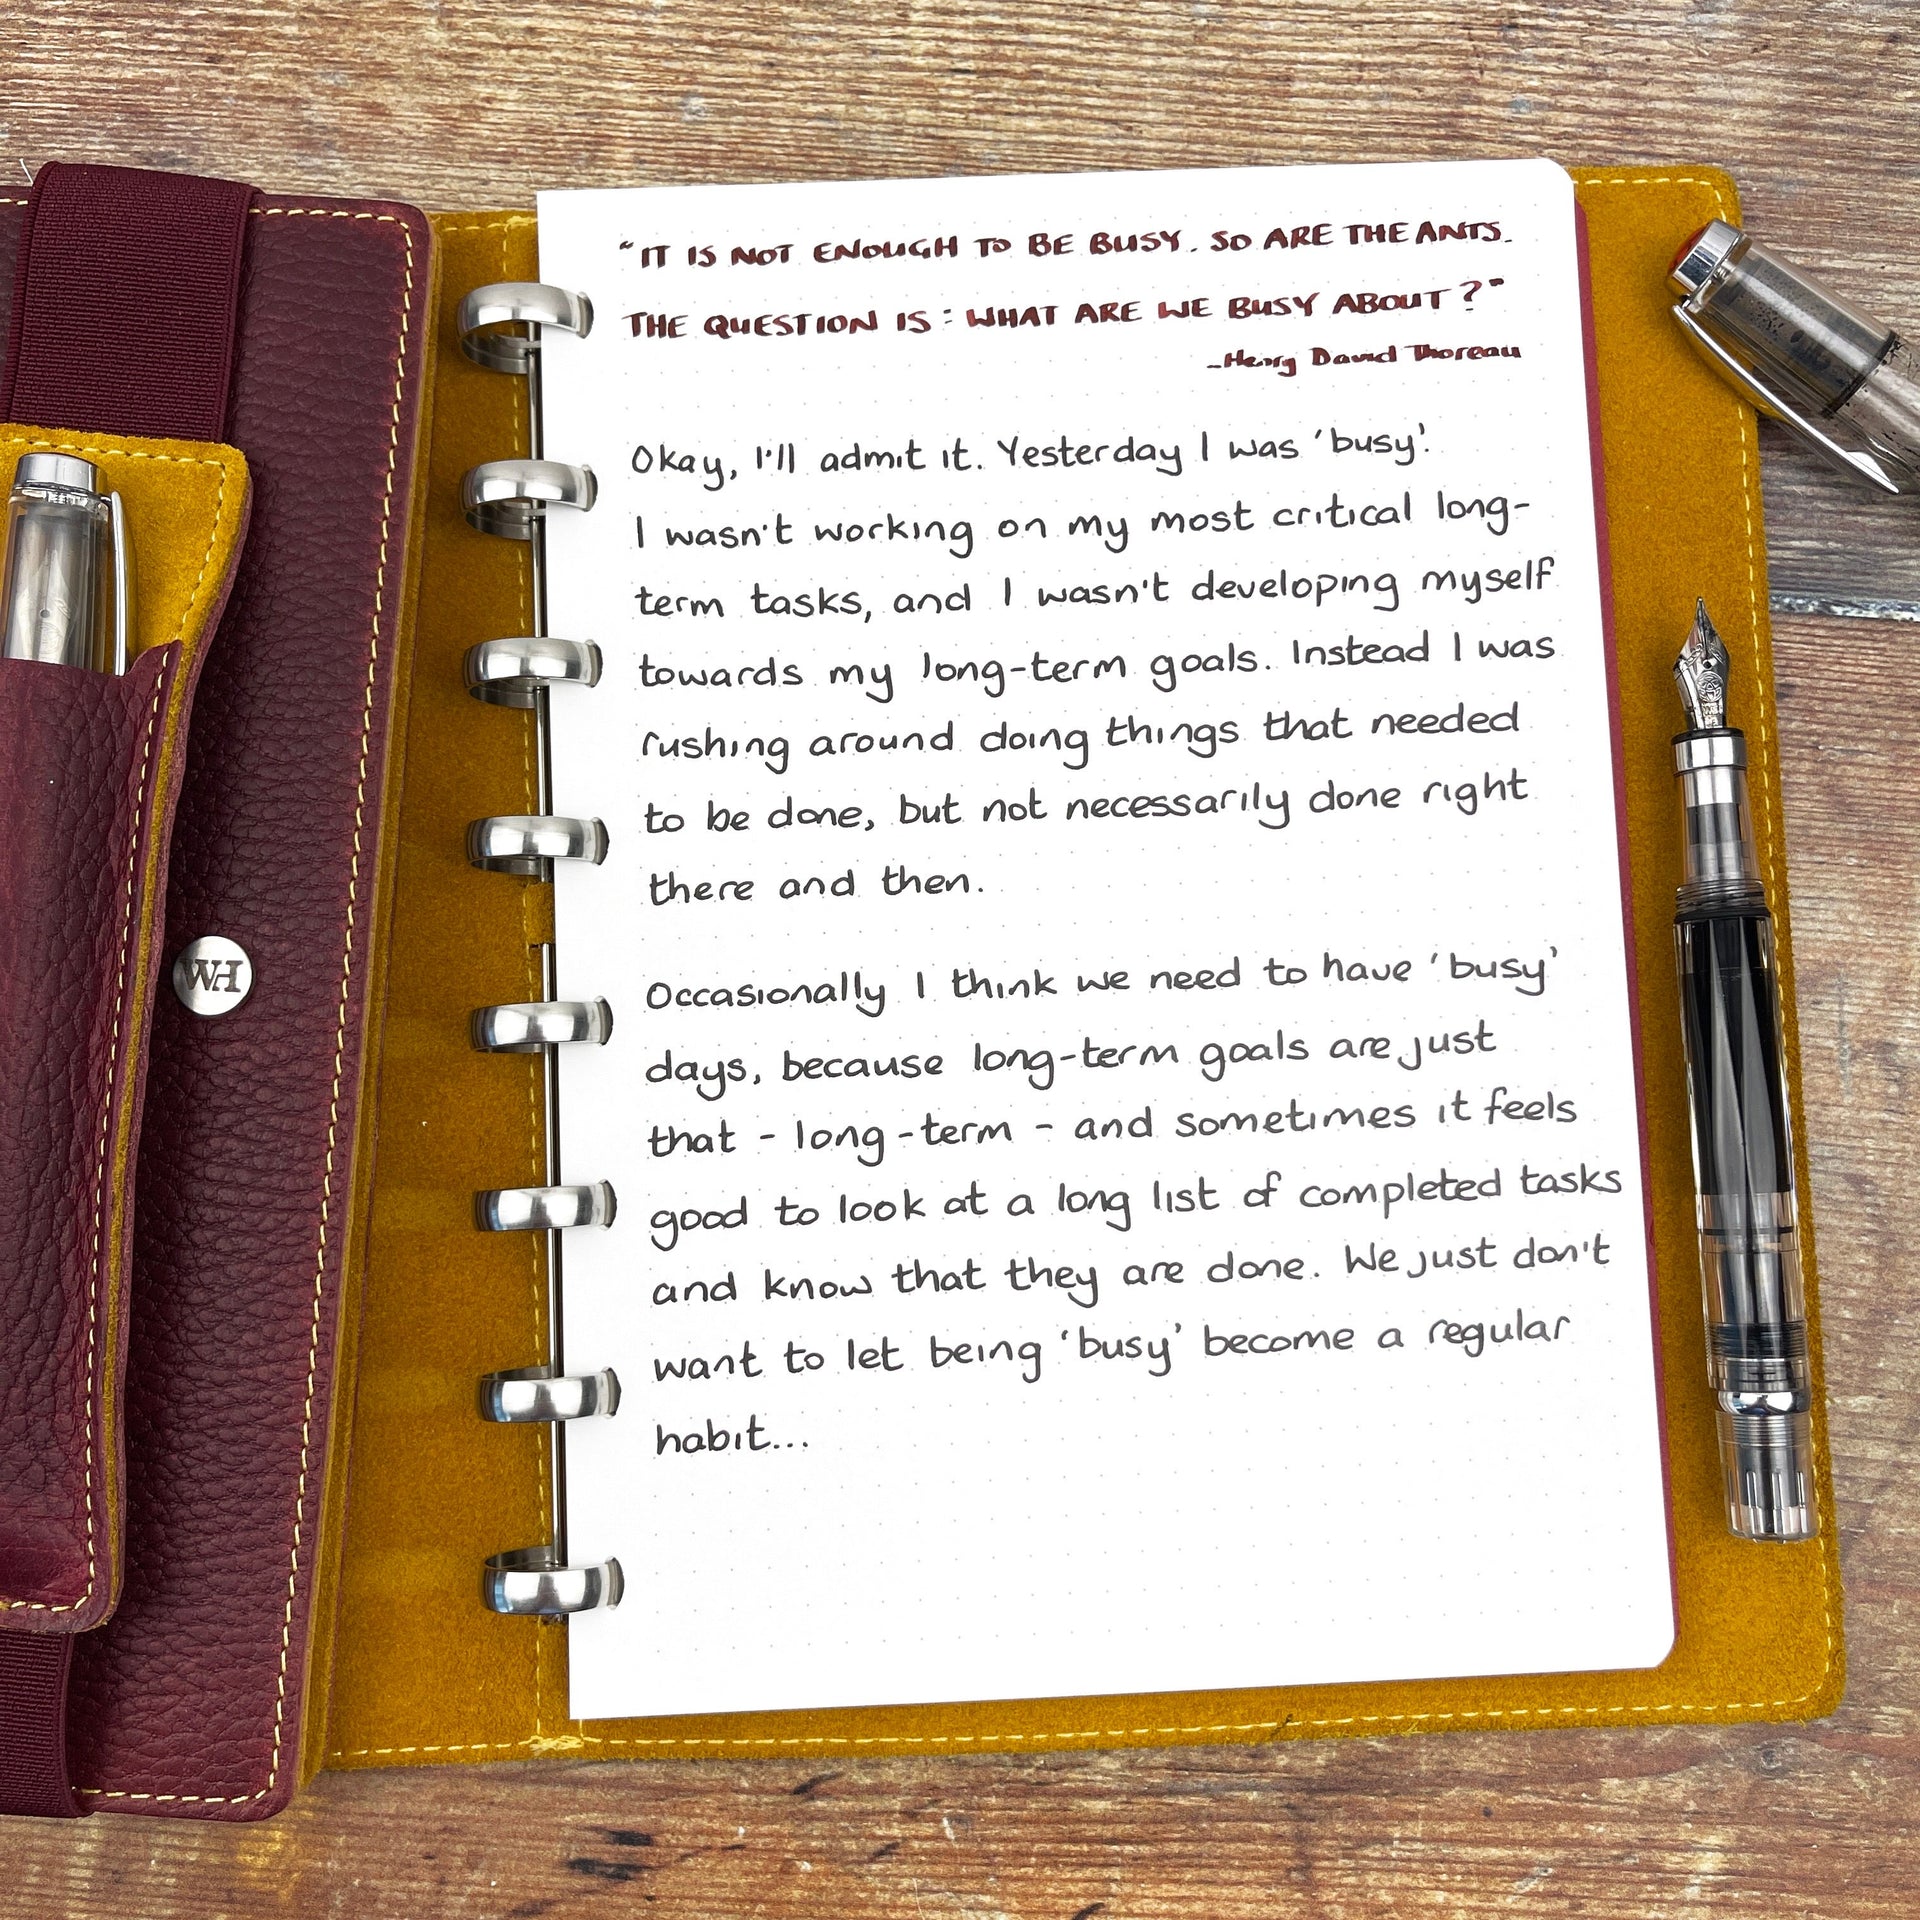 "IT IS NOT ENOUGH TO BE BUSY. SO ARE THE ANTS.
THE QUESTION IS: WHAT ARE WE BUSY ABOUT?"
-Henry David Thoreau
Okay, I'll admit it. Yesterday I was 'busy'.
I wasn't working on my most critical long-
term tasks, and I wasn't developing myself
towards my long-term goals. Instead I was
rushing around doing things that needed
to be done, but not necessarily done right
there and then.
Occasionally I think we need to have 'busy'
days, because long-term goals are just
that - long-term - and sometimes it feels
good to look at a long list of completed tasks
and know that they are done. We just don't
want to let being 'busy' become a regular
habit...
WH